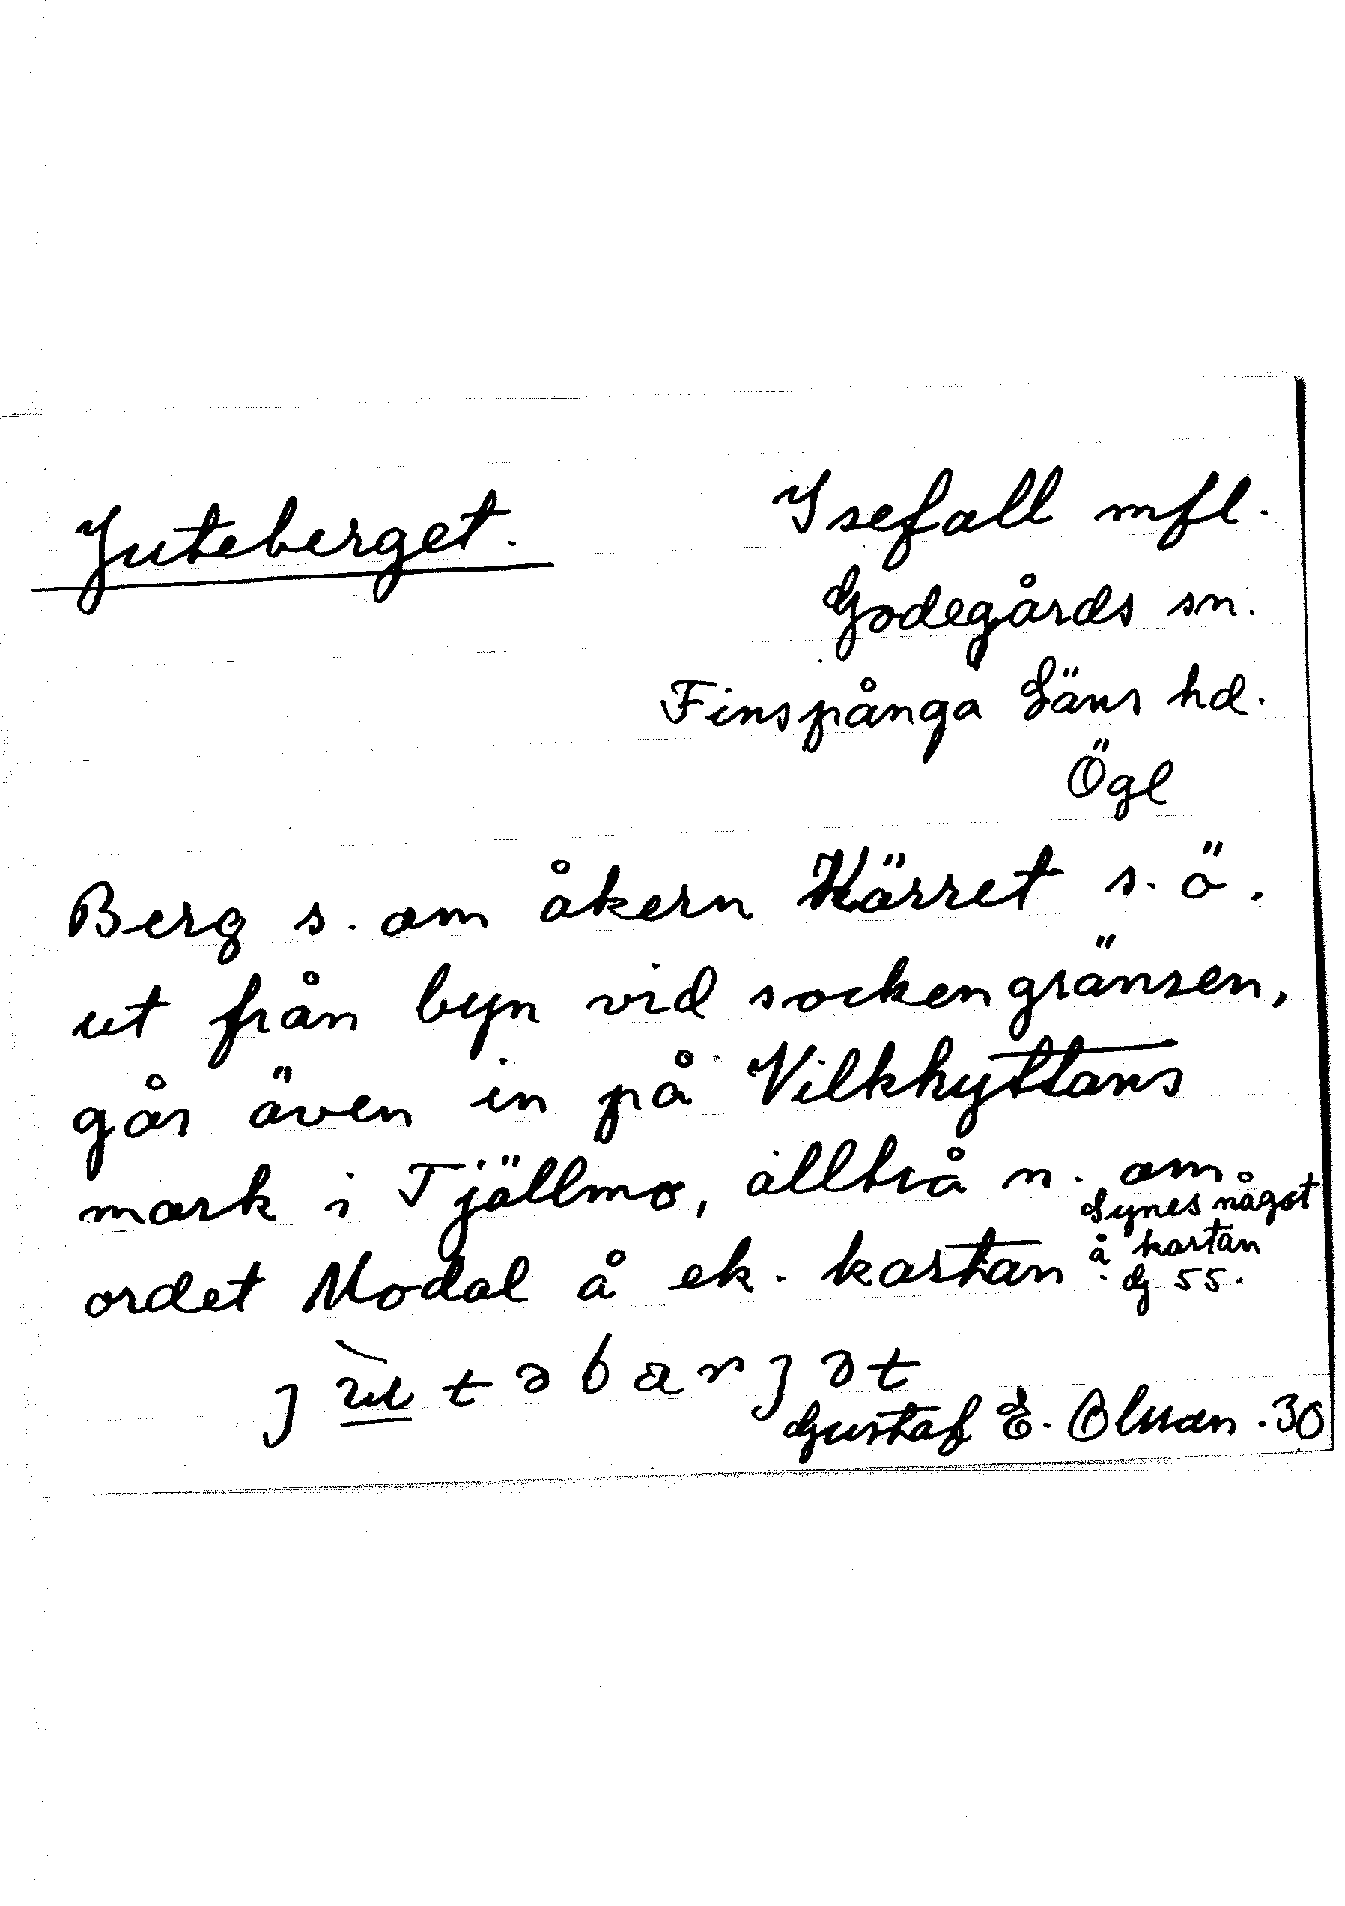 Juteberget.
Isefall mfl.
Godegårds sn.
Finspånga Läns hd.
Ögl
Berg s. om åkern Kärret s.ö.
ut från byn vid sockengränsen,
går även in på Vilkhyttans
mark i Tjällmo, alltså n. om
ordet Modal å ek. kartan.
Synes något
å kartan
dj 55.
j u t ə b a r j ə t
Gustaf E. Olsson .30